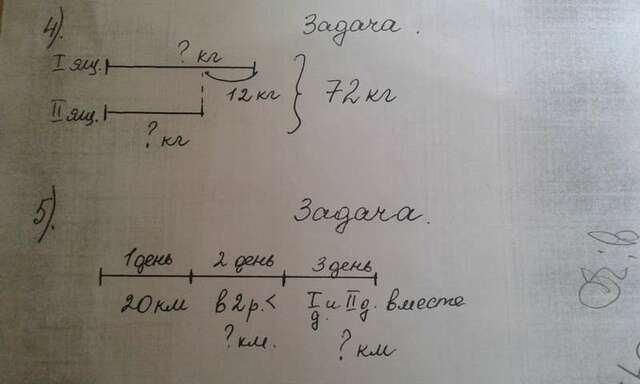 4). Задача.
? кг
I ящ.
12 кг
72 кг
II ящ.
? кг
5). Задача.
1 день 2 день 3 день
20 км в 2 р. < I д. и II д. вместе
? км. ? км